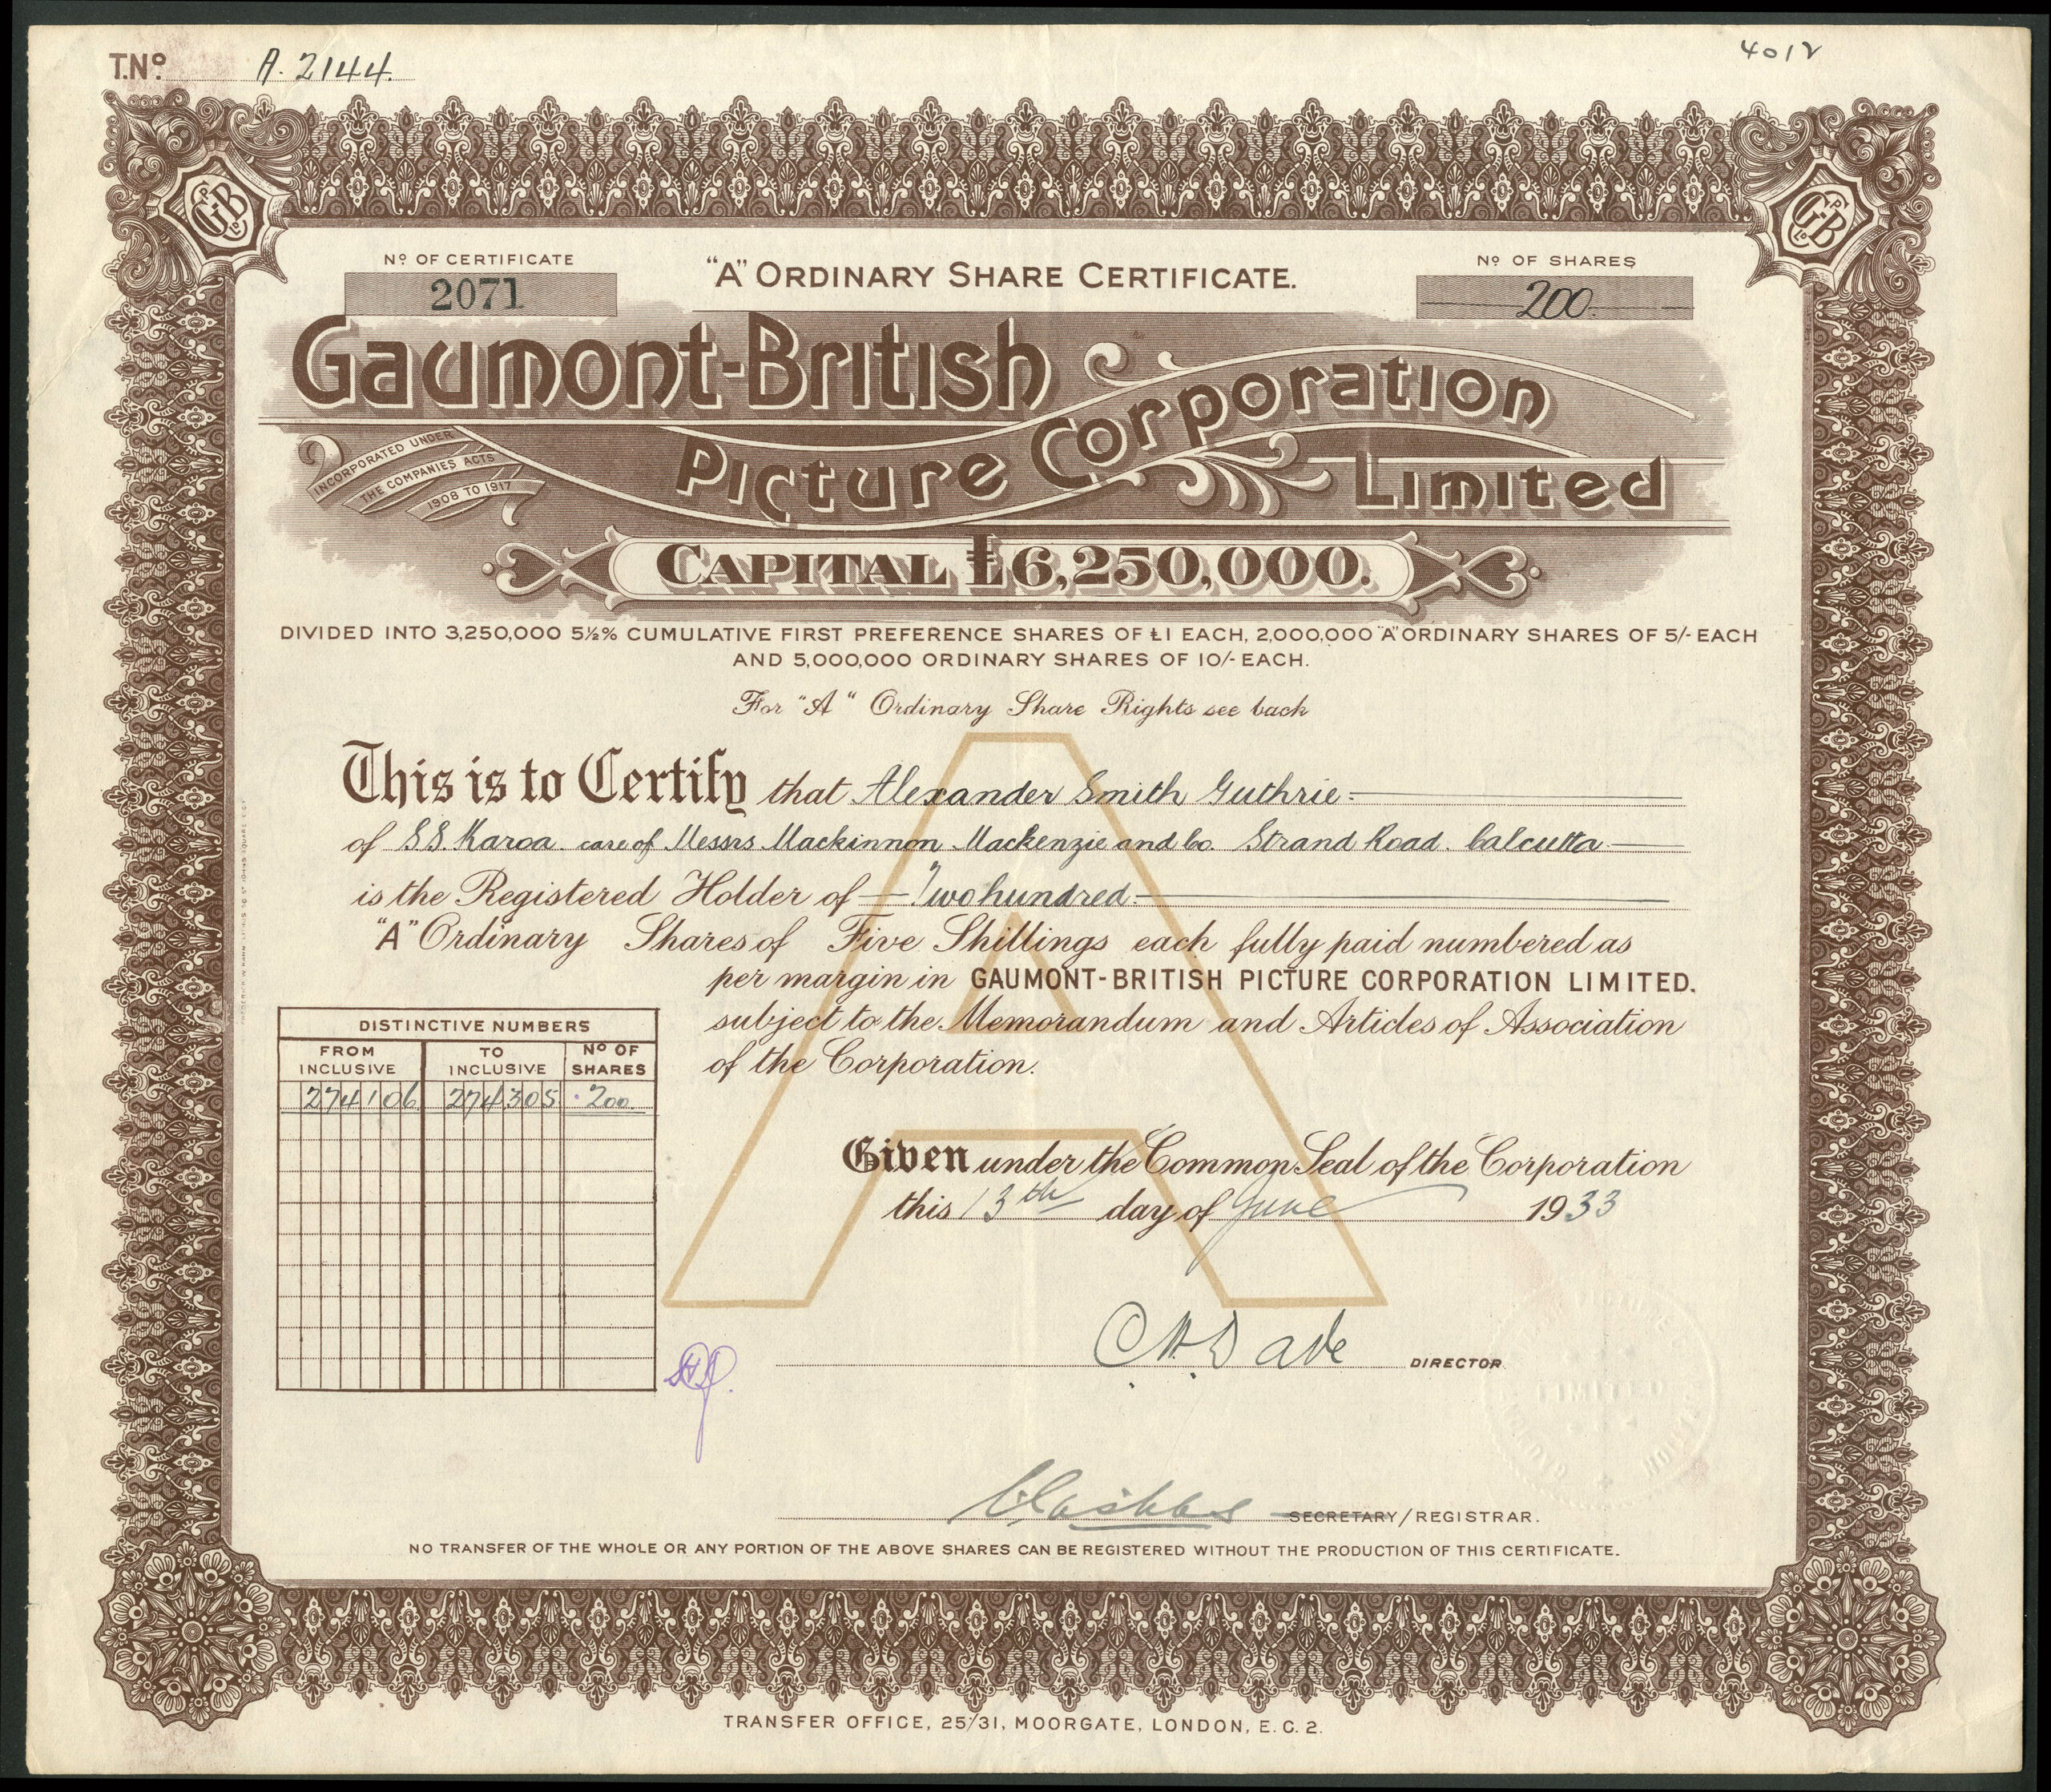 T.Nº A. 2144.
4012
Nº OF CERTIFICATE
2071
"A" ORDINARY SHARE CERTIFICATE.
Nº OF SHARES
200
Gaumont-British
Picture Corporation
Limited
INCORPORATED UNDER
THE COMPANIES ACTS
1908 TO 1917
CAPITAL £6,250,000.
DIVIDED INTO 3,250,000 5½% CUMULATIVE FIRST PREFERENCE SHARES OF £1 EACH, 2,000,000 "A" ORDINARY SHARES OF 5/- EACH
AND 5,000,000 ORDINARY SHARES OF 10/- EACH.
For "A" Ordinary Share Rights see back
This is to Certify that Alexander Smith Guthrie
of SS Karoa care of Messrs Mackinnon Mackenzie and Co. Strand Road. Calcutta
is the Registered Holder of Two hundred
"A" Ordinary Shares of Five Shillings each fully paid numbered as
per margin in GAUMONT-BRITISH PICTURE CORPORATION LIMITED.
subject to the Memorandum and Articles of Association
of the Corporation.
DISTINCTIVE NUMBERS
FROM INCLUSIVE TO INCLUSIVE Nº OF SHARES
274106 274305 200
Given under the Common Seal of the Corporation
this 13th day of June 1933
DIRECTOR
SECRETARY/REGISTRAR.
LIMITED
NO TRANSFER OF THE WHOLE OR ANY PORTION OF THE ABOVE SHARES CAN BE REGISTERED WITHOUT THE PRODUCTION OF THIS CERTIFICATE.
TRANSFER OFFICE, 25/31, MOORGATE, LONDON, E.C.2.